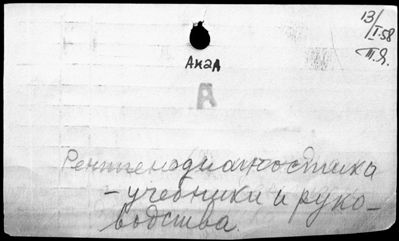 13/I.58
Т.Я.
Акад
А
Рентгенодиагностика
- учебники и руко-
водства.